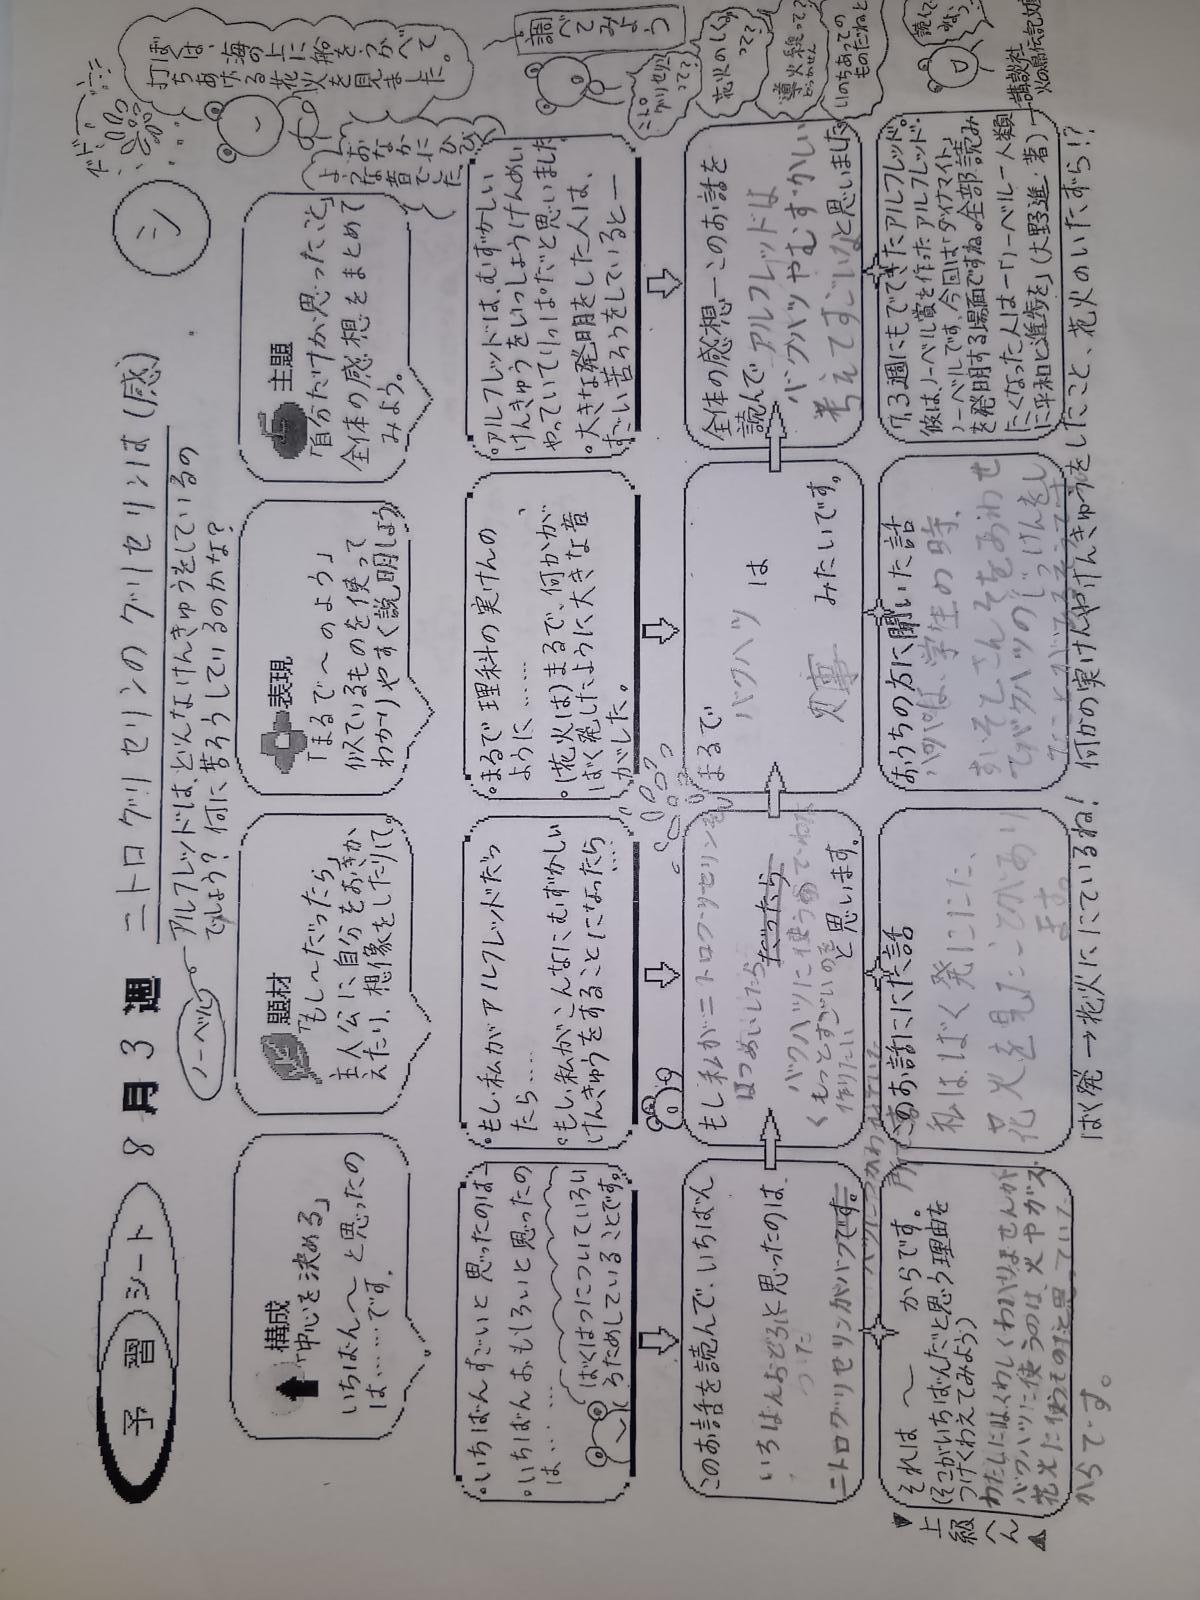 予習シート 8月3週 ニトログリセリンのグリセリンは(感)
シ
ノーベル
アルフレッドは、どんなけんきゅうをしているの
でしょう? 何に苦ろうしているのかな?
ドドーン
ぼくは、海の上に船をうかべて
打ちあげる花火を見ました。
おなかにひびく
ような音でした
構成
「中心を決める」
いちばん〜と思ったの
は、……です。
題材
「もし〜だったら」
主人公に自分をおきか
えたり、想像をしたりして。
表現
「まるで〜のよう」
似ているものを使って
わかりやすく説明しよう
主題
「自分だけが思ったこと」
全体の感想をまとめて
みよう。
調べてみよう
ニトログリセリンって?
花火のしくみって?
導火線って?
いのちあってのものだねと
。いちばんすごいと思ったのは―
。いちばんおもしろいと思ったの
は、……
ばくはつについていろい
ろためしていることです。
。もし、私がアルフレッドだっ
たら……
。もし、私がこんなにむずかしい
けんきゅうをすることになったら
……
。まるで理科の実けんの
ように……
。(花火は)まるで、何かが、
ばく発したように大きな音
がした。
。アルフレッドは、むずかしい
けんきゅうをいっしょうけんめい
やっていてりっぱだと思いました
。大きな発明をした人は、
すごい苦ろうをしていると―
このお話を読んで、いちばん
いちばんおどろいたと思ったのは、
ニトログリセリンがバクハツです。
もし私がニトログリセリンを
はつめいしたら
だったら
バクハツに使うのでわなく
もっとすごいのを
作りたい
と思います。
まるで
バクハツ は
みたいです。
全体の感想―このお話を
読んでアルフレッドは
バクハツやむずかしい
考えてすごいなと思いました。
上級へん
それは 〜 からです。
(そこがいちばんだと思う理由を
つけくわえてみよう)
わたしにはくわしくわかりませんが
バクハツに使うのは、火やガス
花火に使うものだと思っていた
からです。
お話ににた話
私は、ばく発ににた、
花火を見たことがあり
ます。
おうちの方に聞いた話
学生の時、
すいそとさんそをあわせ
てバクハツのじっけんをし
7、3週にもでてきたアルフレッド。
彼は、ノーベル賞を作ったアルフレッド・
ノーベルです。今回は「ダイナマイト」
を発明する場面ですね。全部読み
たくなった人は―「ノーベル―人類
に平和と進歩を」(大野進・著)―講談社
火の鳥伝記文庫
ばく発→花火ににているね! 何かの実けんやけんきゅうをしたこと、花火のいたずら!?